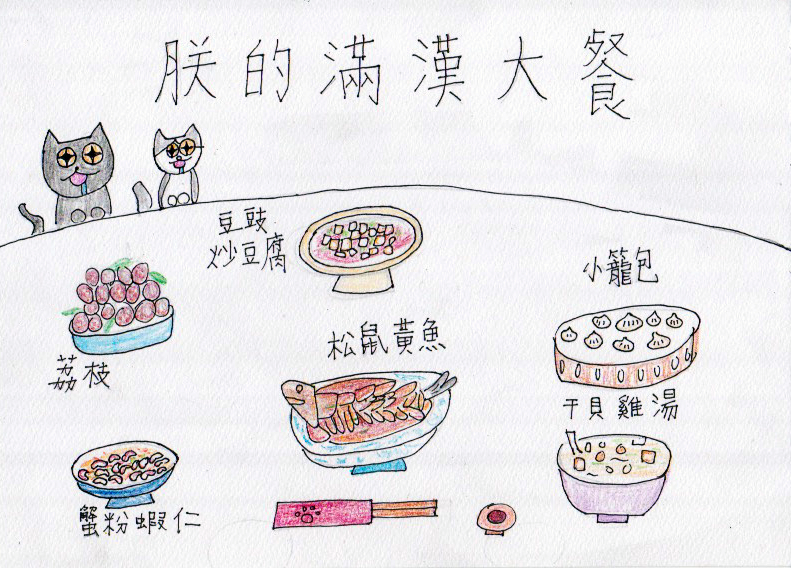 朕的滿漢大餐
豆豉
炒豆腐
小籠包
荔枝
松鼠黃魚
干貝雞湯
蟹粉蝦仁